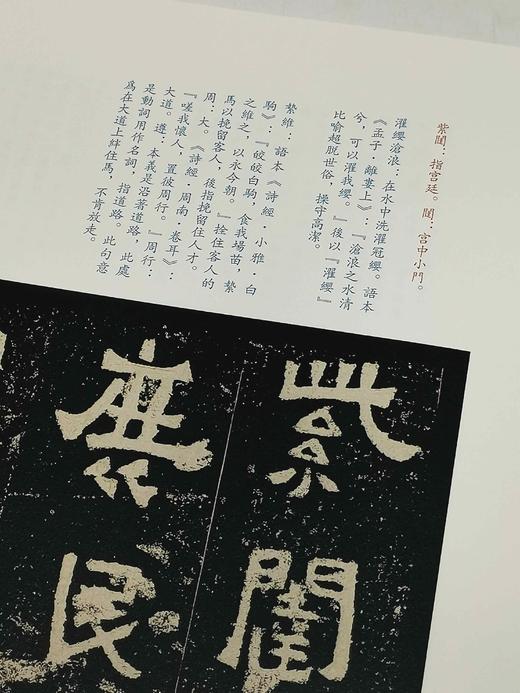 紫闥：指宮廷。闥：宮中小門。
濯纓滄浪：在水中洗濯冠纓。語本
《孟子·離婁上》：『滄浪之水清
兮，可以濯我纓。』後以『濯纓』
比喻超脫世俗，操守高潔。
縶維：語本《詩經·小雅·白
駒》：『皎皎白駒，食我場苗，縶
之維之，以永今朝。』拴住客人的
馬以挽留客人，後指挽留住人才。
周：大。《詩經·周南·卷耳》：
『嗟我懷人，置彼周行。』周行：
大道。遵：本義是沿著道路，此處
是動詞用作名詞，指道路。此句意
爲在大道上絆住馬，不肯放走。
紫闥
庶民